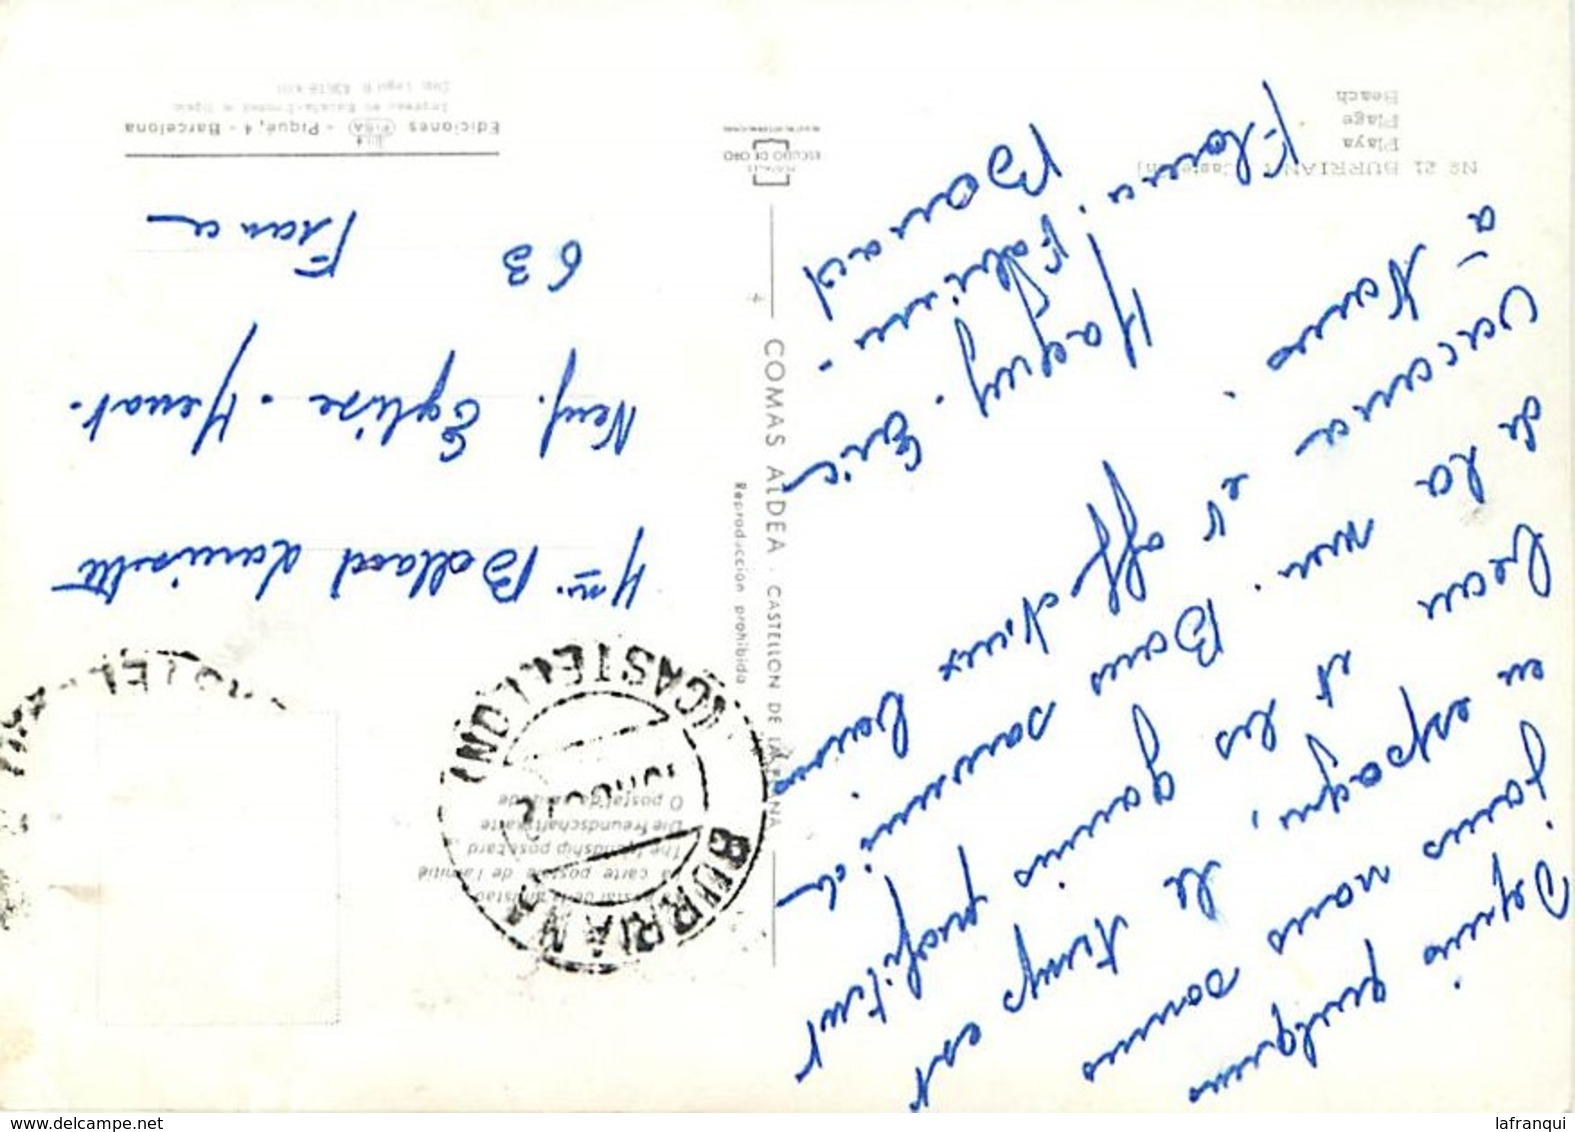 Nº 21 BURRIANA (Castellón)
Playa
Plage
Beach
Depuis quelques
jours nous sommes
en espagne, le temps est
beau et les gamins profitent
de la mer. Bons souvenirs de
vacances et affectueux baisers
à tous.
Maguy - Eric
Florence. Fabienne -
Barraud
COMAS ALDEA · CASTELLON DE LA PLANA
Reproducción prohibida
ESCUDO DE ORO
La postal de la amistad
La carte postale de l'amitié
The friendship postcard
Die freundschaftskarte
O postal da amizade
BURRIANA
(CASTELLON)
Mme Bollard
Neuf. Eglise - Menat.
63
France
Ediciones FISA - Piqué, 4 - Barcelona
Impreso en España-Printed in Spain
Dep. Legal B.
delcampe.net
lafranqui